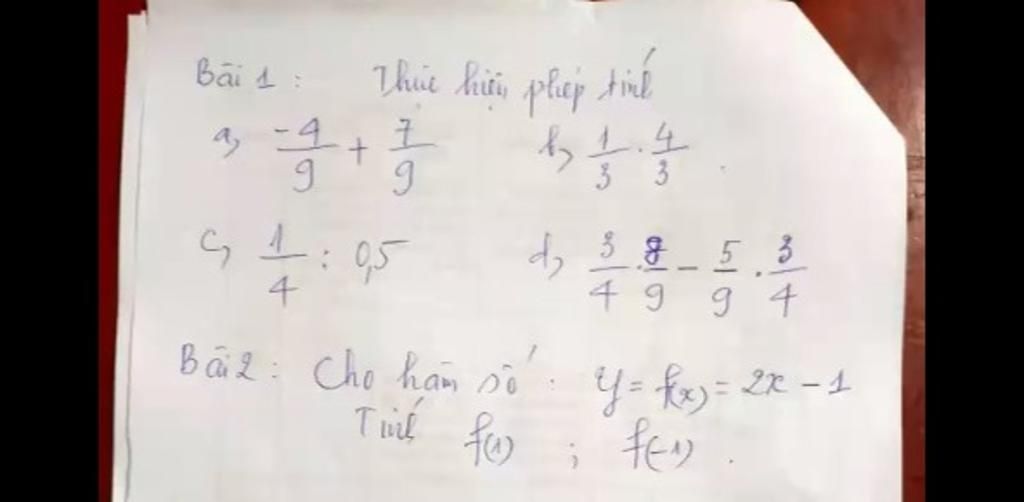 Bài 1: Thực hiện phép tính
a, -4/9 + 7/9 b, 1/3 . 4/3 .
c, 1/4 : 0,5 d, 3/4 . 8/9 - 5/9 . 3/4
Bài 2: Cho hàm số : y = f(x) = 2x - 1
Tính f(1) ; f(-1) .